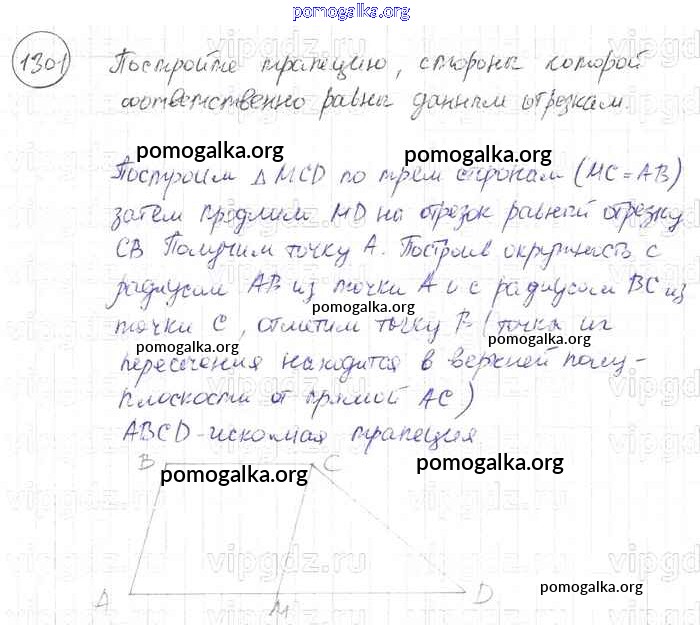 pomogalka.org
1301 Постройте трапецию, стороны которой
соответственно равны данным отрезкам.
pomogalka.org pomogalka.org
Построим Δ MCD по трем сторонам (MC = AB)
затем продлим MD на отрезок равный отрезку
CB Получим точку A. Построив окружность с
радиусом AB из точки A и с радиусом BC из
pomogalka.org
точки C, отметим точку B (точка их
pomogalka.org pomogalka.org
пересечения находится в верхней полу-
плоскости от прямой AC)
ABCD - искомая трапеция
B C
pomogalka.org pomogalka.org
A M D
pomogalka.org
vipgdz.ru